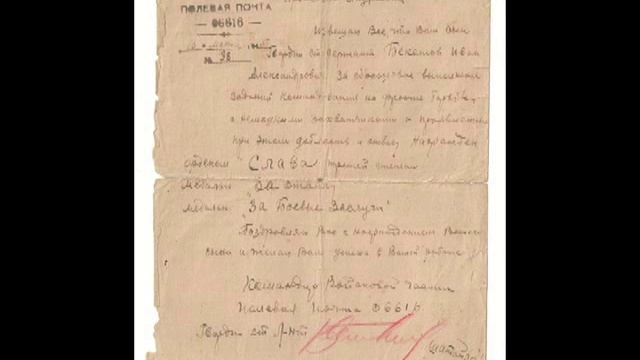 ПОЛЕВАЯ ПОЧТА
— 06616 —
№ 38
Извещаю Вас, что Ваш сын
Гвардии ст. сержант Бекетов Иван
Александрович За образцовое выполнение
заданий командования на фронте борьбы
с немецкими захватчиками и проявленные
при этом доблесть и отвагу Награжден
орденом "Слава" третьей степени
медалью "За Отвагу"
медалью "За Боевые Заслуги"
Поздравляю Вас с награждением Вашего
сына и желаю Вам успеха в Вашей работе
Командир Войсковой Части
Полевая Почта 06616
Гвардии ст. Л-нт